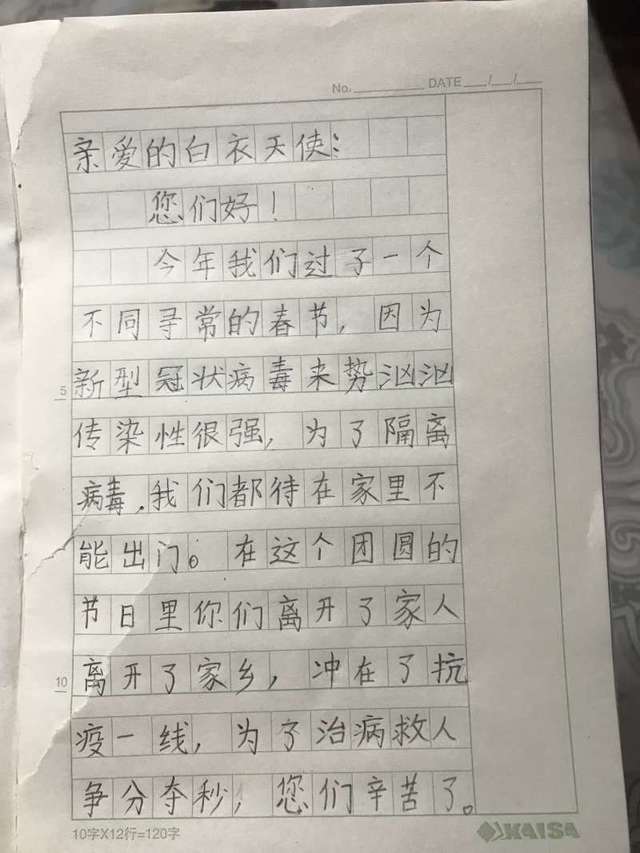 No. DATE / /
亲爱的白衣天使:
您们好!
今年我们过了一个
不同寻常的春节,因为
新型冠状病毒来势汹汹
传染性很强,为了隔离
病毒,我们都待在家里不
能出门。在这个团圆的
节日里你们离开了家人
离开了家乡,冲在了抗
疫一线,为了治病救人
争分夺秒,您们辛苦了。
5
10
10字X12行=120字
KAISA